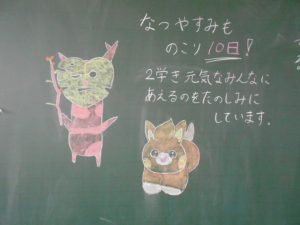 なつやすみも
のこり10日!
2学き元気なみんなに
あえるのをたのしみに
しています。